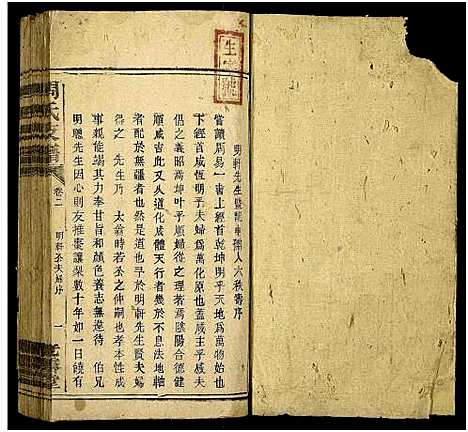 明軒先生暨龍孺人六秩壽序
嘗讀周易一書上經首乾坤明乎天地為萬物始也
下經首咸恆明乎夫婦為萬化原也蓋咸主乎感夫
倡之義昭焉坤叶乎順婦從之理著焉陰陽合德健
順咸吉此又人道化成體天行於不息法地軸
者配於無疆者也然是道也早於明軒先生暨夫婦
得之 先生乃 太翁時若公之仲嗣也孝本性成
事親能竭其力奉甘旨和顏色養志無違待 伯兄
明聰先生因心則友推棗讓梨數十年如一日饒有
周氏支譜
卷二
明軒公夫婦序
一